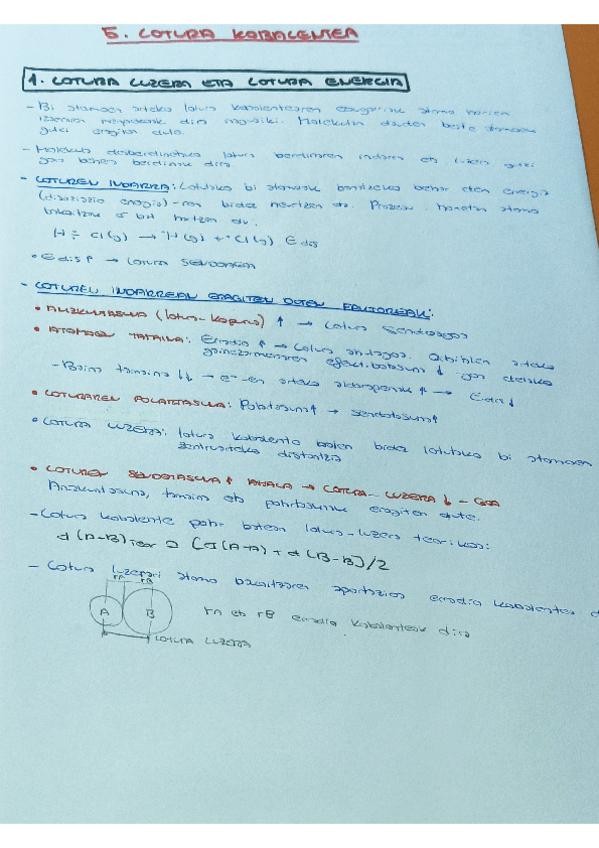 5. LOTURA KOBALENTEA
1. LOTURA LUZERA ETA LOTURA ENERGIA
- Bi atomoen arteko lotura kobalentearen ezaugarriak atomo horien
izaeraren menpekoak dira nagusiki. Molekulan dauden beste atomoek
gutxi eragiten dute.
- Molekula desberdinetako lotura berdinaren indarra eta luzera gutxi
gora behera berdinak dira.
- LOTUREN INDARRA: Lotutako bi atomoak banatzeko behar den energia
(disoziazio energia)-ren bidez neurtzen da. Prozesu honetan atomo
bakoitzak e⁻ bat hartzen du.
H÷Cl(g) → ·H(g) + ·Cl(g) Edis
• Edis↑ → Lotura SENDOENA
- LOTUREN INDARREAN ERAGITEN DUTEN FAKTOREAK:
• ANIZKUNTASUNA (lotura-kopurua) ↑ → Lotura Sendoagoa
• ATOMOEN TAMAINA: Erradioa ↑ → Lotura ahulagoa. Orbitalen arteko
gainezarmenaren efektibotasuna ↓ delako
- Baina tamaina ↓↓ → e⁻-en arteko aldarapenak ↑ → Edis↓
• LOTURAREN POLARITASUNA: Polaritasuna↑ → sendotasuna↑
• LOTURA LUZERA: lotura kobalente baten bidez lotutako bi atomoen
zentruarteko distantzia
• LOTUREN SENDOTASUNA ↑ AHALA → LOTURA-LUZERA ↓ - GOA
Anizkuntasuna, tamaina eta polaritasunak eragiten dute.
- Lotura kobalente polar baten lotura-luzera teorikoa:
d(A-B)teor = [d(A-A) + d(B-B)]/2
- Lotura luzerari atomo bakoitzaren aportazioa erradio kobalentea d
rA rB
A B
rA eta rB erradio kobalenteak dira
LOTURA LUZERA